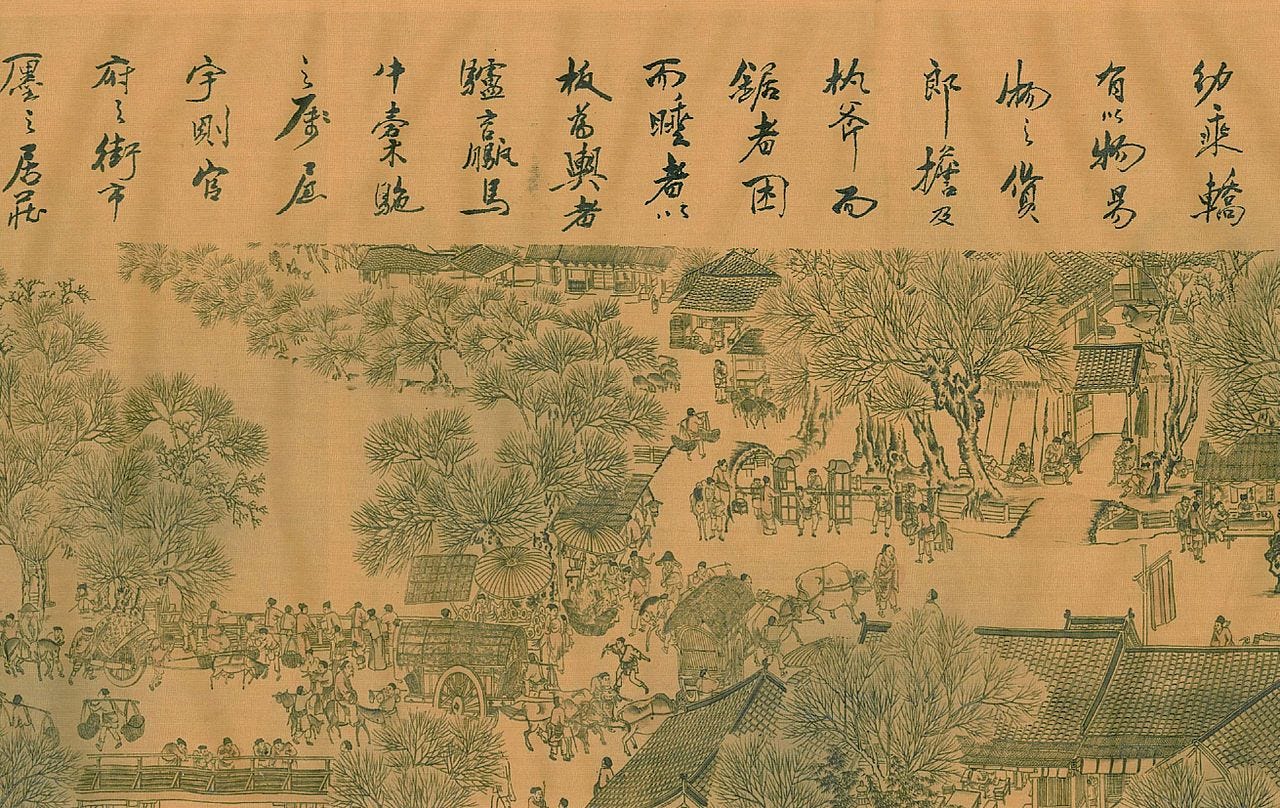 幼乘轎
有以物易
物之貨
郎擔及
執斧而
鋸者困
而睡者以
板為輿者
驢 馬
牛橐駞
之属屋
宇則官
府之街市
廛之居莊